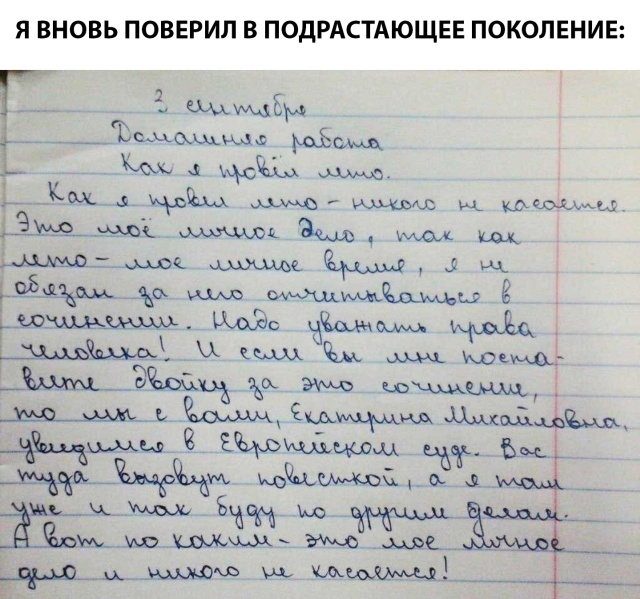 Я ВНОВЬ ПОВЕРИЛ В ПОДРАСТАЮЩЕЕ ПОКОЛЕНИЕ:
3 сентября
Домашняя работа
Как я провёл лето.
Как я провёл лето – никого не касается.
Это моё личное дело, так как
лето – мое личное время, я не
обязан за него отчитываться в
сочинении. Надо уважать права
человека! И если вы мне поста-
вите двойку за это сочинение,
то мы с вами, Екатерина Михайловна,
увидимся в Европейском суде. Вас
туда вызовут повесткой, а я там
уже и так буду по другим делам.
А вот по каким – это мое личное
дело и никого не касается!